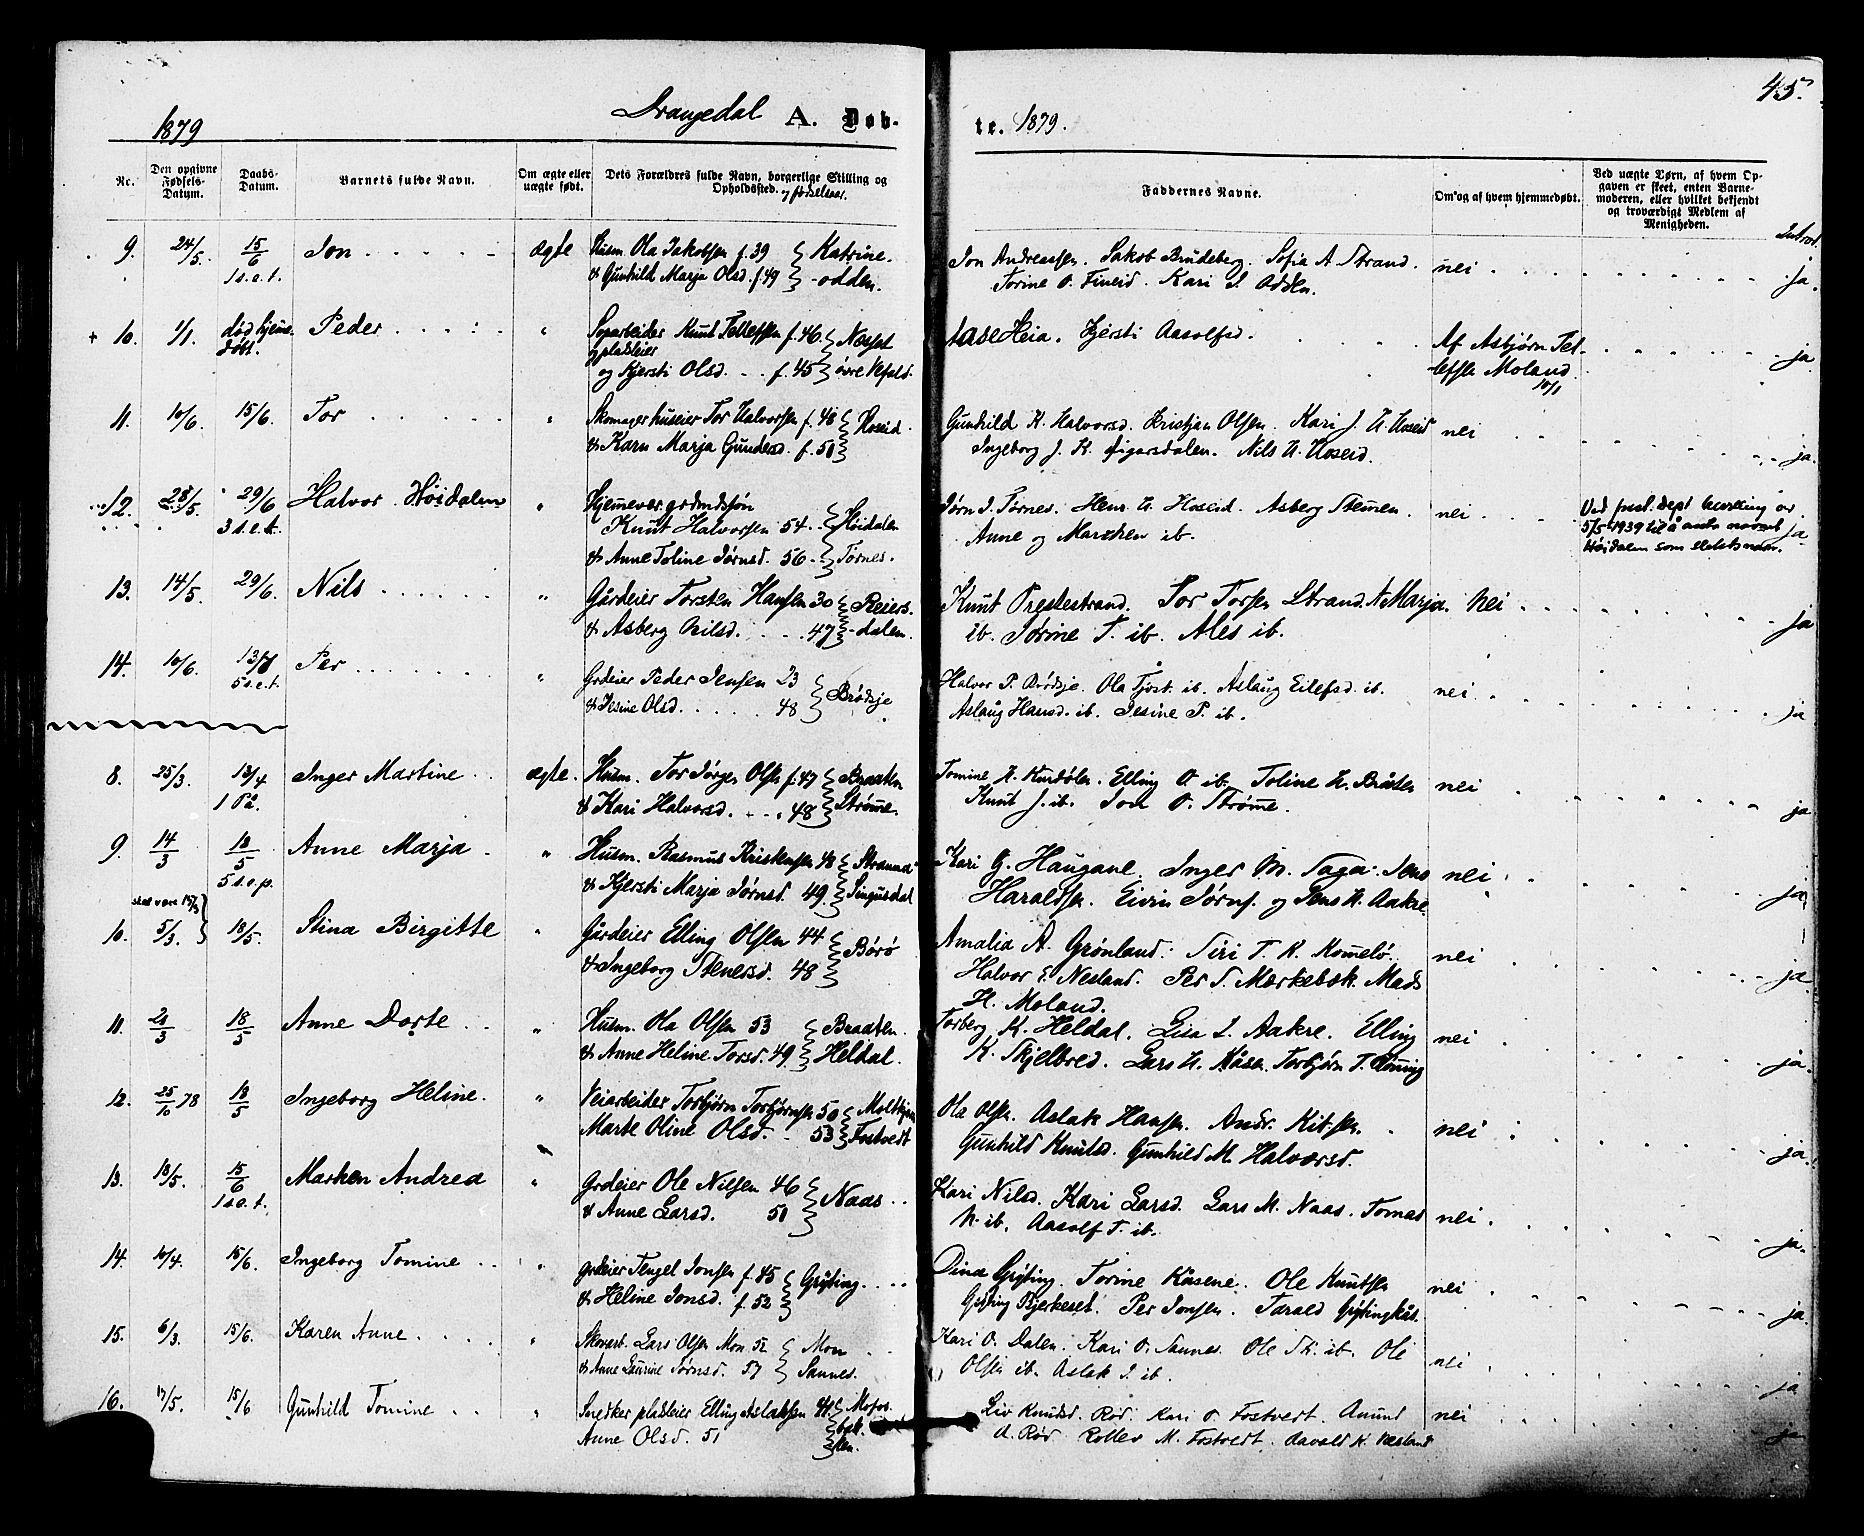 45.
1879 Drangedal A. Døb-
te. 1879.
Nr. Den opgivne Fødsels-Datum. Daabs-Datum. Barnets fulde Navn. Om ægte eller uægte født. Dets Forældres fulde Navn, borgerlige Stilling og Opholdssted. og fødselsaar. Faddernes Navne. Om og af hvem hjemmedøbt. Ved uægte Børn, af hvem Opgaven er skeet, enten Barnemoderen, eller hvilket bekjendt og troværdigt Medlem af Menigheden. Introd.
9. 24/5. 15/6 Jon ægte Husm Ola Jakobsen f. 39 Katrine- Jon Andreassen. Jakob Brudeberg. Sofia A. Strand. nei ja.
1 s.e.t. & Gunhild Marja Olsd. f. 49 -odden. Torine O. Fineid. Kari J. Odden.
10. 1/1 død hjemme- Peder " Kunt Tellefsen f. 46 Næset Aase Heia. Kjersti Aasolfsd. Af Asbjørn Tel- ja
døbt. og pladseier
og Kjersti Olsd. f. 45 øvre Vefald. -lefsen Moland. 10/1
11. 10/6. 15/6. Tor " Skomager huseier Tor Halvorsen f. 48 Hoseid Gunhild K. Halvorsd. Kristjan Olsen. Kari J. H. Hoseid nei ja.
& Karn Marja Gundersd. f. 51 Ingeborg J. K. Nils H. Hoseid.
12. 28/5. 29/6 Halvor Høidalen " Knut Halvorsen 54 Høidalen Jørn J. Tørnes. Hans H. Hoseid. Asberg Stemen. nei Ved just. dept. av
3 s.e.t. & Anne Toline Jørnsd. 56 Tørnes. Anne og Marthen ib. 5/5 1939 til å anta navnet ja
Høidalen som slektsnavn.
13. 14/5. 29/6. Nils " Gårdeier Torsten Hansen 30 Reiers- Knut Prestestrand. Tor Torsen Strand. N. Marja. Nei ja
& Asberg Nilsd. 47 -dalen. ib. Jørine T. ib. Ales ib.
14. 10/6. 13/7 Per " Grdeier Peder Jensen 23 Brødsje Halvor P. Brødsje. Ola Tjost. ib. Aslaug Eilefsd. ib. nei ja
5 s.e.t. Olsd. 48 Aslaug Hansd. ib. Jesine P. ib.
8. 25/3. 13/4 Inger Martine ægte. Husm. Tor Jørgen Olsen f. 47 Braaten Tomine H. Elling O. ib. Toline H. Bråten nei ja
1 På. & Kari Halvorsd. 48 Strømme. Knut J. ib. Jon O. Strømme.
9. 14/3 18/5 Anne Marja " Husm. Rasmus Kristensen 48 Kari G. Haugane. Inger M. Jens nei ja
5 s.e.p. & Kjersti Marja Jørnsd. 49 Singusdal Haraldsen. Eivin Jørns. og Jens H. Aakre.
skal være 15/3
10. 5/3. 18/5. Stina Birgitte " Gårdeier Elling Olsen 44 Børø Amalia A. Grønland. Siri T. K. nei ja
& Ingeborg Stenersd. 48 Halvor E. Nesland. Per S. Mørkebæk. Mads
H. Moland.
11. 21/3 18/5 Anne Dorte " Husm. Ola Olsen 53 Braaten Torberg K. Heldal. Lisa L. Aakre. Elling nei ja.
& Anne Heline Torsd. 49 Heldal. K. Skjelbred. Lars H. Kåsen. Torbjørn T.
12. 78 18/5 Ingeborg Heline. " Veiarbeider Torbjørn Torbjørnsen 50 Ola Olsen. Aslak Hansen. Andr. nei ja.
Marte Oline Olsd. 53 Tostvedt Gunhild Knutsd. Gunhild M. Halvorsd.
13. 18/5. 15/6 Marken Andrea " Grdeier Ole Nilsen 46 Naas Kari Nilsd. Kari Larsd. Lars M. Naas. Tomas nei ja.
1 s.e.t. & Anne Larsd. 51 N. ib. Aasolf T. ib.
14. 10/4. 15/6. Ingeborg Tomine " grdeier Tengel Jonsen f. 45 Grýting Dina Gryting. Torine Kåsene. Ole Knutsen nei ja.
& Heline Jonsd. f. 52 Gryting Bjerkeset. Per Jonsen. Tarald Grytingkås.
15. 6/3. 15/6. Karen Anne " Skovarb. Lars Olsen Mon 52 Mon Kari O. Dalen. Kari O. Sannes. Ole Th. ib. Ole nei ja
& Anne Laurine Jørnsd. 57 Sannes. Olsen ib. Aslak J. ib.
16. 17/5. 15/6 Gunhild Tomine " Snedker pladseier Elling Aslaksen Liv Knudsd. Rød. Kari O. Tostvedt. Anund nei ja
Anne Olsd. 51 A. Rød. Rollev M. Tostvedt. Aavald K. Næsland